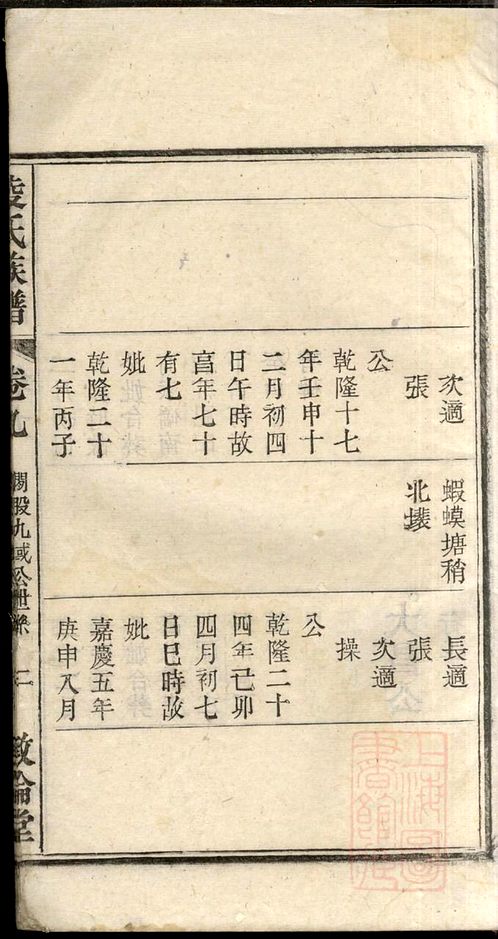 次適
張
公
乾隆十七
年壬申十
二月初四
日午時故
亯年七十
有七
妣
乾隆二十
一年丙子
蝦蟆塘稍
北𡑞
長適
張
次適
操
公
乾隆二十
四年己卯
四月初七
日巳時故
妣
嘉慶五年
庚申八月
氏族譜
卷九
股九或公世系
二
敦倫堂
上海圖書館藏